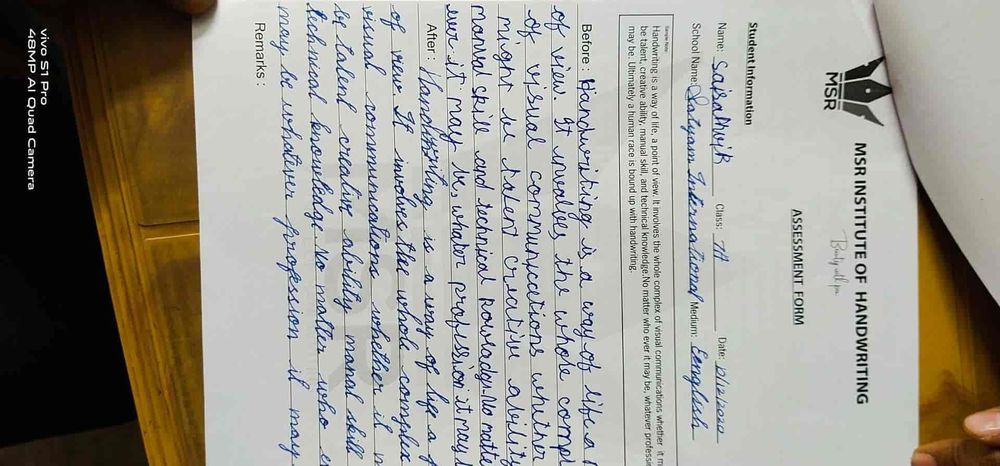 MSR
MSR INSTITUTE OF HANDWRITING
Beauty with pen
ASSESSMENT FORM
Student Information
Name: Class: 7A Date: 12/12/2020
School Name: Satyam International Medium: Eenglish
Sample Note:
Handwriting is a way of life, a point of view. It involves the whole complex of visual communications whether, it m
be talent, creative ability, manual skill, and technical knowledge.No matter who ever it may be, whatever professi
may be. Ultimately a human race is bound up with handwriting.
Before: Handwriting is a way of life a
of view. It involies, the whole compl
of visual communications whether
might be talent creative ability
manval skill and technical No matte
ever it. may be, whator profession it may
After: Handwriting is a way of a
of view It involves the whole complex
visual communications whether it m
be talent creative ability manal skill
technical knowledge No matter who e
may be whatiever profession it may
Remarks :
vivo S1 Pro
48MP AI Quad Camera